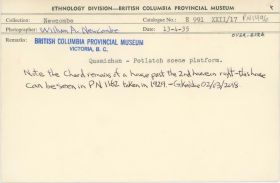 ETHNOLOGY DIVISION—BRITISH COLUMBIA PROVINCIAL MUSEUM
Collection: Newcombe Catalogue No.: E 991 XXII/17 PN1496
Photographer: William A. Newcombe Date: 13-4-35
REMARKS: BRITISH COLUMBIA PROVINCIAL MUSEUM
VICTORIA, B. C.
Quamichan - Potlatch scene platform.
Note the Chard remains of a house past the 2nd house in right - this house
can be seen in PN 1182 taken in 1929